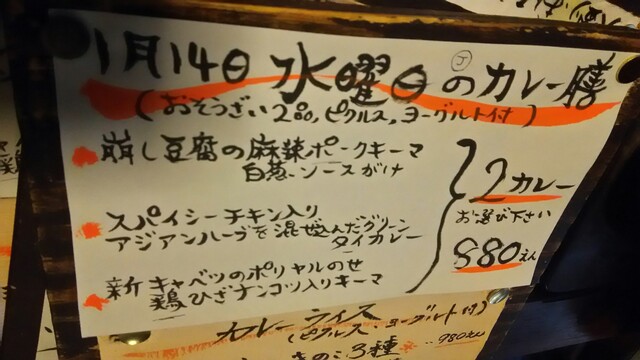 1月14日 水曜日のカレー膳
(おそうざい2品,ピクルス,ヨーグルト付)
崩し豆腐の麻辣ポークキーマ
白葱ソースがけ
スパイシーチキン入り
アジアンハーブを混ぜ込んだグリーン
タイカレー
新キャベツのポリヤルのせ
鶏ひざナンコツ入りキーマ
2カレー
お選び下さい
980えん
カレーライス
(ピクルス ヨーグルト付)
きのこ3種
980えん